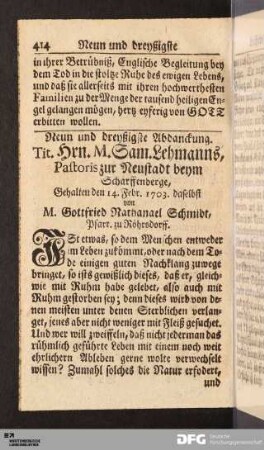 414 Neun und dreyßigste
in ihrer Betrübniß, Englische Begleitung bey
dem Tod in die stoltze Ruhe des ewigen Lebens,
und daß sie allerseits mit ihren hochwerthesten
Familien zu der Menge der tausend heiligen En-
gel gelangen mögen, hertz eyferig von GOTT
erbitten wollen.
Neun und dreyßigste Abdanckung.
Tit. Hrn. M. Sam. Lehmanns,
Pastoris zur Neustadt beym
Scharffenberge,
Gehalten den 14. Febr. 1703. daselbst
von
M. Gottfried Nathanael Schmidt,
Pfarr. zu Röhrsdorff.
IST etwas, so dem Menschen entweder
im Leben zukömmt, oder nach dem To-
de einigen guten Nachklang zuwege
bringet, so ists gewißlich dieses, daß er, gleich-
wie mit Ruhm habe gelebet, also auch mit
Ruhm gestorben sey; denn dieses wird von de-
nen meisten unter denen Sterblichen verlan-
get, jenes aber nicht weniger mit Fleiß gesuchet.
Und wer will zweiffeln, daß nicht jederman das
rühmlich geführte Leben mit einem noch weit
ehrlichern Ableben gerne wolte verwechselt
wissen? Zumahl solches die Natur erfodert,
und
DFG Deutsche
Forschungsgemeinschaft